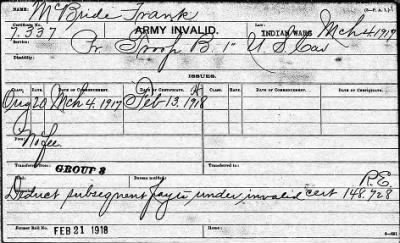 NAME: McBride Frank
7.337 ARMY INVALID. Law: INDIAN WARS Mch 4 1917
Service: Pr Troop B. 1" U S Cav
Disability:
ISSUES.
CLASS. RATE. DATE OF COMMENCEMENT. DATE OF CERTIFICATE. CLASS. RATE. DATE OF COMMENCEMENT. DATE OF CERTIFICATE.
Orig 20 Mch 4. 1917 Feb 13. 1918
No fee
Transferred from: GROUP 3
R.E.
Deduct subsequent payts under invalid cert 148.928
Former Roll No. FEB 21 1918 Home: